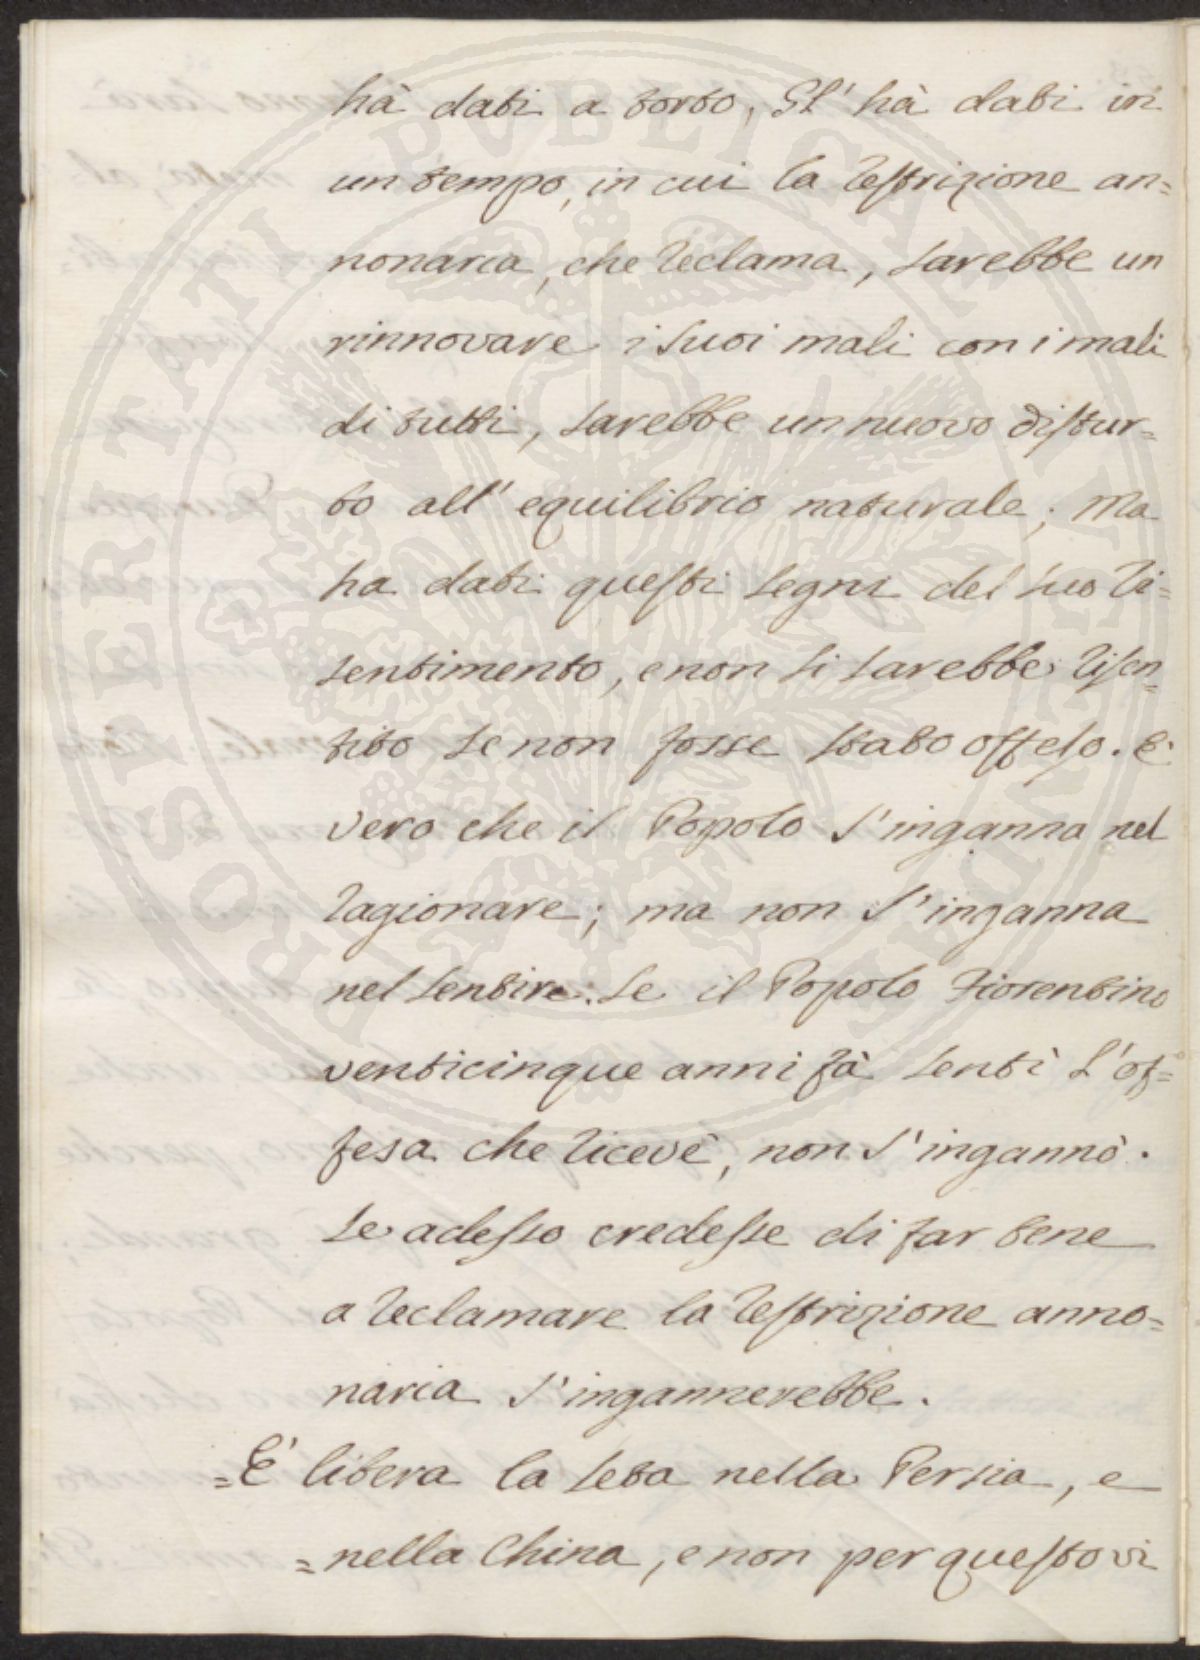 hà dati a torto, Gl' hà dati in
un tempo, in cui la restrizione an=
nonaria, che reclama, sarebbe un
rinnovare i suoi mali con i mali
di tutti, sarebbe un nuovo distur=
bo all' equilibrio naturale; Ma
ha dati questi segni del suo ri=
sentimento, e non si sarebbe risen=
tito se non fosse stato offeso. È
vero che il Popolo s'inganna nel
ragionare; ma non s'inganna
nel sentire. Se il Popolo Fiorentino
venticinque anni fà sentì l'of=
fesa che ricevè, non s'ingannò.
Se adesso credesse di far bene
a reclamare la restrizione anno=
naria s'ingannerebbe.
=È libera la seta nella Persia, e
=nella China, e non per questo vi
PROSPERITATI PUBLICAE AUGENDAE